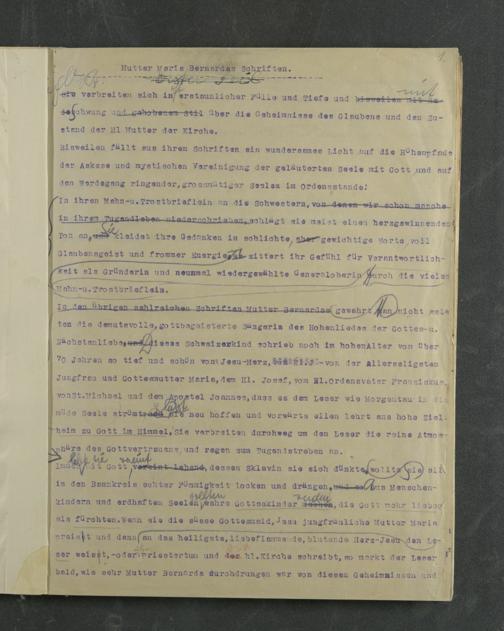 1.
Mutter Maria Bernardas Schriften.
sie verbreiten sich in erstaunlicher Fülle und Tiefe und bisweilen mit Be- mit
schwung und gehobenem Stil über die Geheimnisse des Glaubens und den Zu-
stand der Hl Mutter der Kirche.
Bisweilen fällt aus ihren Schriften ein wundersames Licht auf die Höhenpfade
der Askese und mystischen Vereinigung der geläuterten Seele mit Gott und auf
den Werdegang ringender, grossmütiger Seelen im Ordensstande!
In ihren Mahn-u.Trostbrieflein an die Schwestern, von denen wir schon manche
in ihrem Tugendleben niederschrieben, schlägt sie meist einen herzgewinnenden
Ton an, und Sie kleidet ihre Gedanken in schlichte, aber gewichtige Worte, voll
Glaubensgeist und frommer Energie. zittert ihr Gefühl für Verantwortlich-
keit als Gründerin und neunmal wiedergewählte Generaloberin durch die vielen
Mahn-u.Trostbrieflein.
In den übrigen zahlreichen Schriften Mutter Bernardas gewahrt man nicht sel-
ten die demutsvolle, gottbegeisterte Sängerin des Hohenliedes der Gottes-u.
Nächstenliebe, und Dieses Schweizerkind schrieb noch im hohen Alter von über
70 Jahren so tief und schön vom Jesu-Herz, von der Allerseligsten
Jungfrau und Gottesmutter Maria, dem Hl. Josef, vom Hl.Ordensvater Franziskus,
von St.Michael und dem Apostel Joannes, dass es dem Leser wie Morgentau in die
müde Seele sie neu hoffen und vorwärts eilen lehrt ans hohe Ziel-
heim zu Gott im Himmel. Sie verbreiten durchweg um den Leser die reine Atmos-
phäre des Gottvertrauens, und regen zum Tugendstreben an.
mit Gott vereint lebend, dessen Sklavin sie sich dünkte, wollte sie
in den Bannkreis echter Frömmigkeit locken und drängen, aus Menschen-
kindern und erdhaften Seelen, wahre Gotteskinder werden, die Gott mehr lieben
als fürchten. Wenn sie die süsse Gottesmaid, Jesu jungfräuliche Mutter Maria
preist und dann an das heiligste, liebeflammende, blutende Herz-Jesu den Le-
ser weisst, -oder Priestertum und der hl.Kirche schreibt, so merkt der Leser
bald, wie sehr Mutter Bernarda durchdrungen war von diesen Geheimnissen und